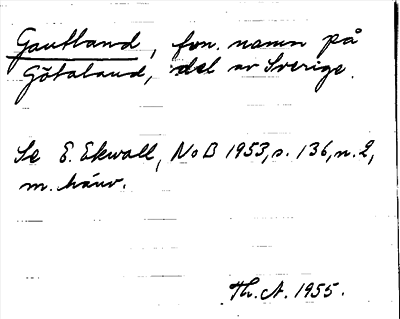 Gautland, fvn. namn på
Götaland, del av Sverige.
Se E. Ekwall, NoB 1953, s. 136, n. 2,
m. hänv.
Th. A. 1955.